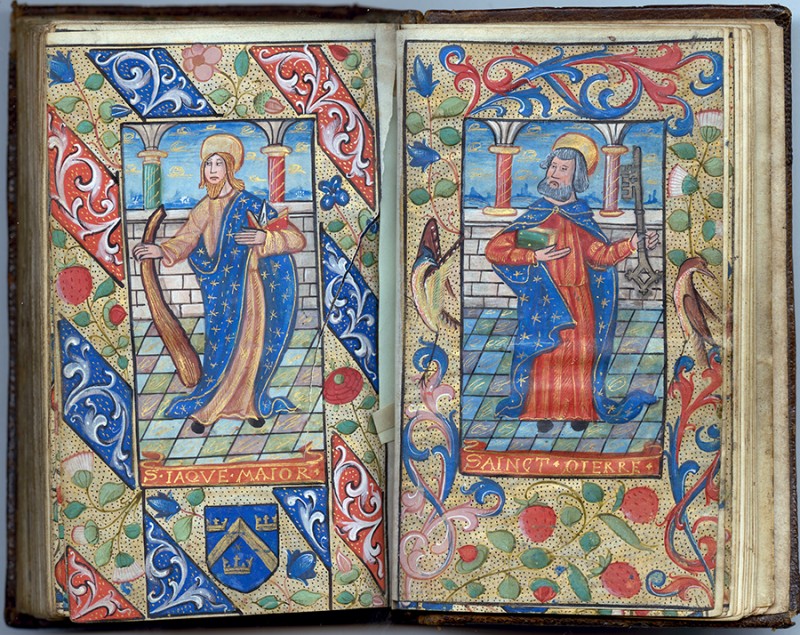 S·IAQVE·MAIOR·
SAINCT·PIERRE·